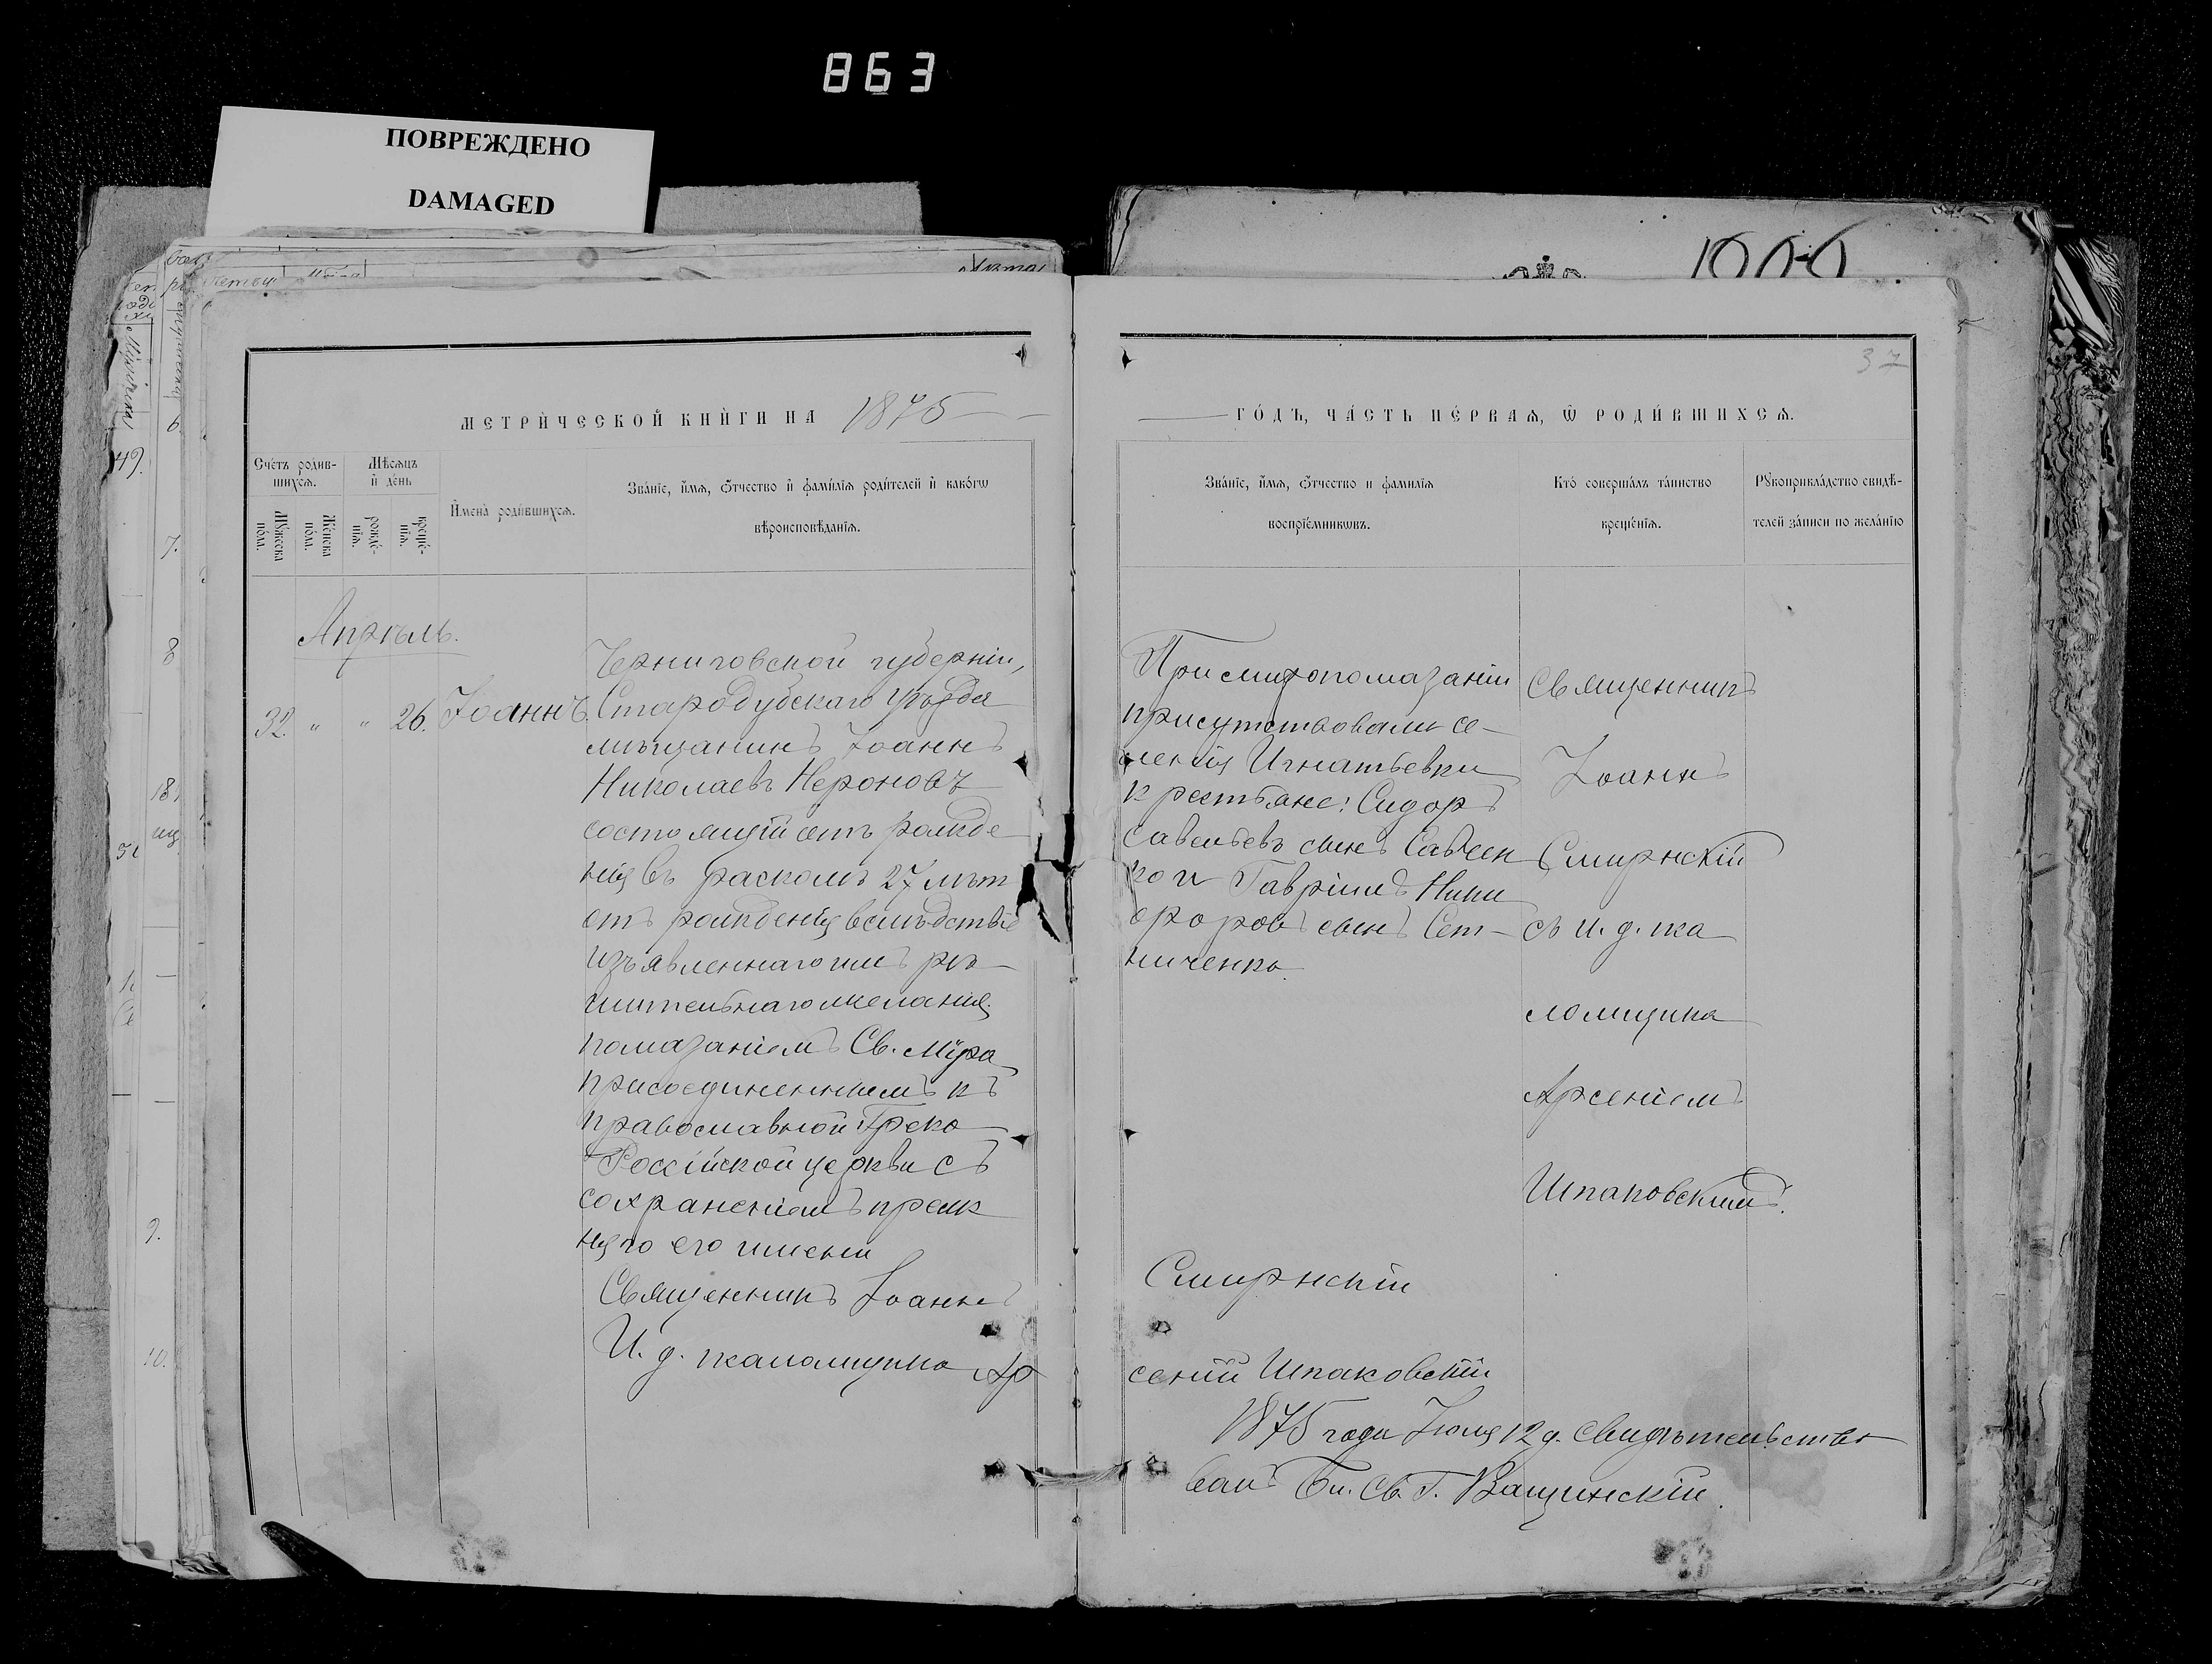 863
ПОВРЕЖДЕНО
DAMAGED
37
МЕТРИ́ЧЕСКОЙ КНИ́ГИ НА 1875
ГО́ДЪ, ЧА́СТЬ ПЕ́РВАѦ, Ѽ РОДИ́ВШИХСѦ.
Сче́тъ роди́в-
шихсѧ.
Мѣ́сѧцъ
и҆ де́нь
Мꙋ́жеска
по́ла.
Же́нска
по́ла.
рожде́-
нїѧ.
креще́-
нїѧ.
И҆мена̀ роди́вшихсѧ.
Зва́нїе, и҆́мѧ, ѻ҆́тчество и҆ фами́лїѧ роди́телей и҆ како́гѡ
вѣроисповѣ́данїѧ.
Зва́нїе, и҆́мѧ, ѻ҆́тчество и фами́лїѧ
воспрїе́мникѡвъ.
Кто̀ соверша́лъ та́инство
креще́нїѧ.
Рꙋкоприкла́дство свидѣ́-
телей за́писи по жела́нїю
Апрѣль.
32. „ „ 26. Іоаннъ.
Черниговской губерніи,
Стародубскаго уѣзда
мѣщанинъ Іоаннъ
Николаевъ Нероновъ
состоящій отъ рожде
нія въ расколѣ 27 лѣт
отъ рожденія вслѣдствіе
изъявленнаго имъ рѣ
шительнаго желанія
помазаніемъ Св. Мѵра
присоединеннымъ къ
православной Греко
Россійской церкви съ
сохраненіемъ преж
няго его имени
Священникъ Іоаннъ
И. д. паламщика Ар
При миропомазаніи
присутствовали се-
ленія Игнатьевки
крестьяне: Сидоръ
Савельевъ сынъ Савеен
ко и Гавріилъ Ники
форовъ сынъ Сет-
ниченко.
Священникъ
Іоаннъ
Смирнскій
съ и. д. па
ломщика
Арсеніемъ
Шпаковскимъ.
Смирнскій
сеній Шпаковскій
1875 года Іюля 12 д. свидѣтельство
валъ Бл. Св. Г. Ващинскій.